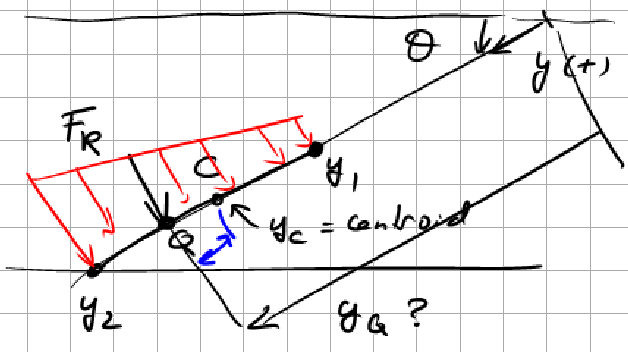 θ
y (+)
F_R
C
y_1
y_c = centroid
Q
y_2
y_Q ?